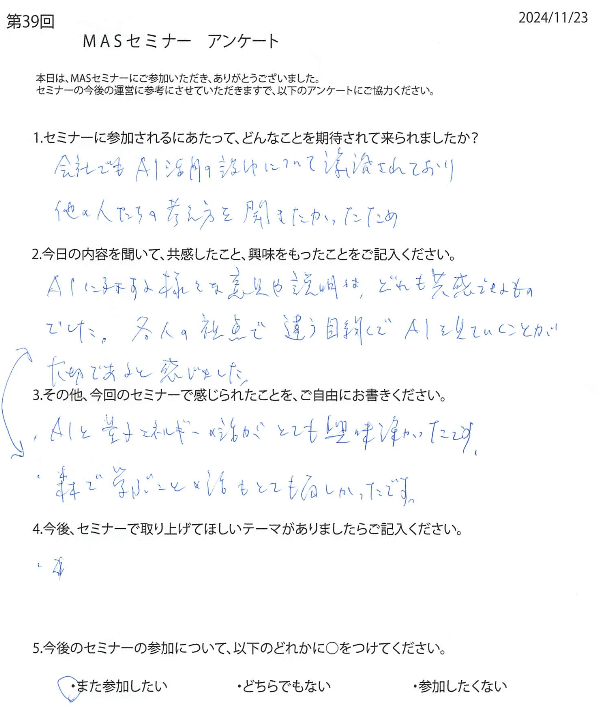 第39回
2024/11/23
MASセミナー アンケート
本日は、MASセミナーにご参加いただき、ありがとうございました。
セミナーの今後の運営に参考にさせていただきますで、以下のアンケートにご協力ください。
1.セミナーに参加されるにあたって、どんなことを期待されて来られましたか？
会社でもAI活用の について されており
他の人たちの考え方を聞きたかったため
2.今日の内容を聞いて、共感したこと、興味をもったことをご記入ください。
AIに対する様々な意見や説明は、どれも共感できるもの
でした。各人の視点で違う目線でAIを見ていくことが
大切であると感じました。
3.その他、今回のセミナーで感じられたことを、ご自由にお書きください。
・AIと量子エネルギーの話がとても興味深かったです。
・森で学ぶことの話もとても面白しかったです。
4.今後、セミナーで取り上げてほしいテーマがありましたらご記入ください。
・
5.今後のセミナーの参加について、以下のどれかに〇をつけてください。
・また参加したい ・どちらでもない ・参加したくない